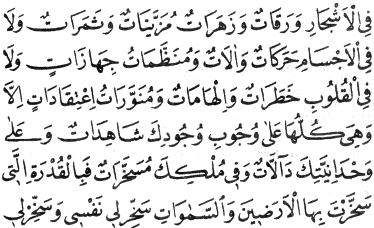 فِى الْاَشْجَارِ وَرَقَاتٌ وَزَهَرَاتٌ مُزَيَّنَاتٌ وَثَمَرَاتٌ وَلَا
فِى الْاَجْسَامِ حَرَكَاتٌ وَاٰلَاتٌ وَمُنَظَّمَاتُ جِهَازَاتٍ وَلَا
فِى الْقُلُوبِ خَطَرَاتٌ وَاِلْهَامَاتٌ وَمُنَوَّرَاتُ اِعْتِقَادَاتٍ اِلَّا
وَهِىَ كُلُّهَا عَلٰى وُجُوبِ وُجُودِكَ شَاهِدَاتٌ وَعَلٰى
وَحْدَانِيَّتِكَ دَٓالَّاتٌ وَفِى مُلْكِكَ مُسَخَّرَاتٌ فَبِالْقُدْرَةِ الَّتِى
سَخَّرْتَ بِهَا الْاَرَضِينَ وَالسَّمٰوَاتِ سَخِّرْ لِى نَفْسِى وَسَخِّرْ لِى